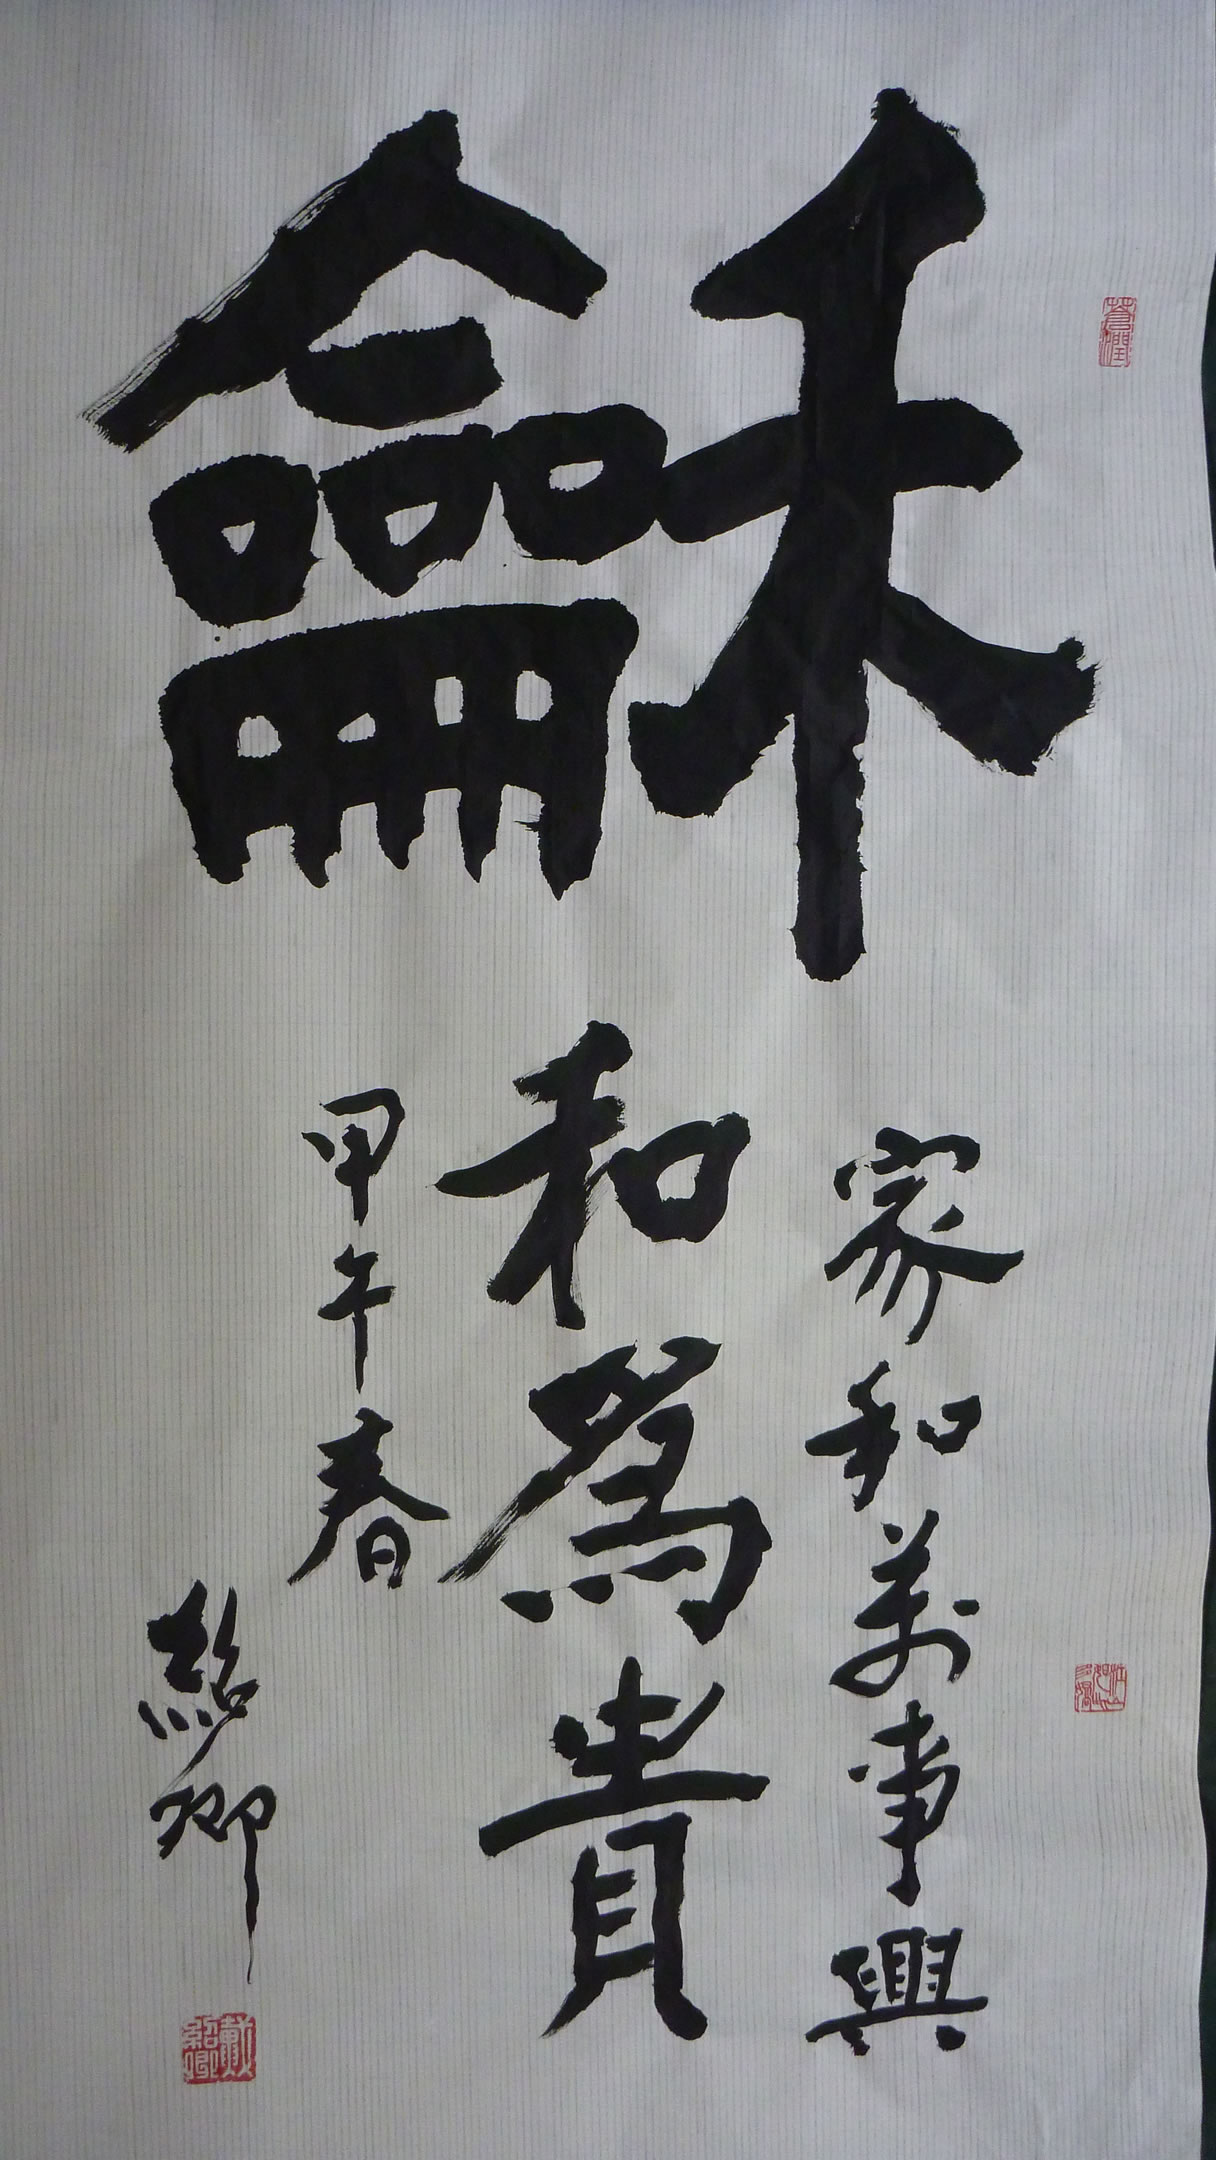 龢
家和萬事興
和爲貴
甲午春
紹卿
戴紹卿